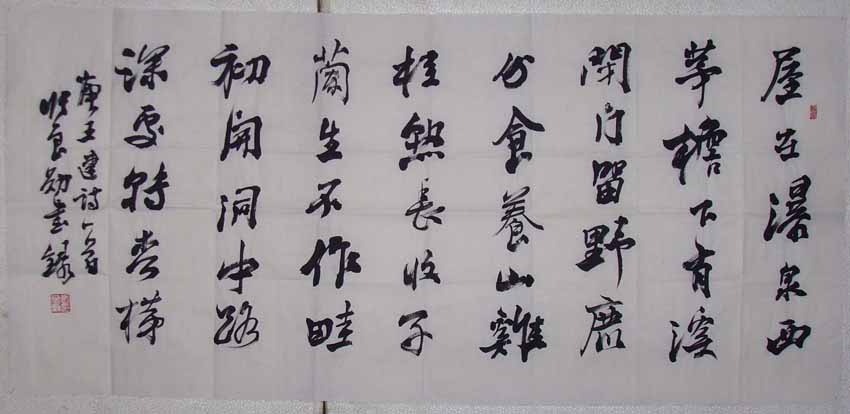 屋在瀑泉西
茅檐下有溪
閉门留野鹿
分食養山雞
桂熟長收子
蘭生不作畦
初開洞中路
深處轉松梯
唐王建詩一首
良勛書錄